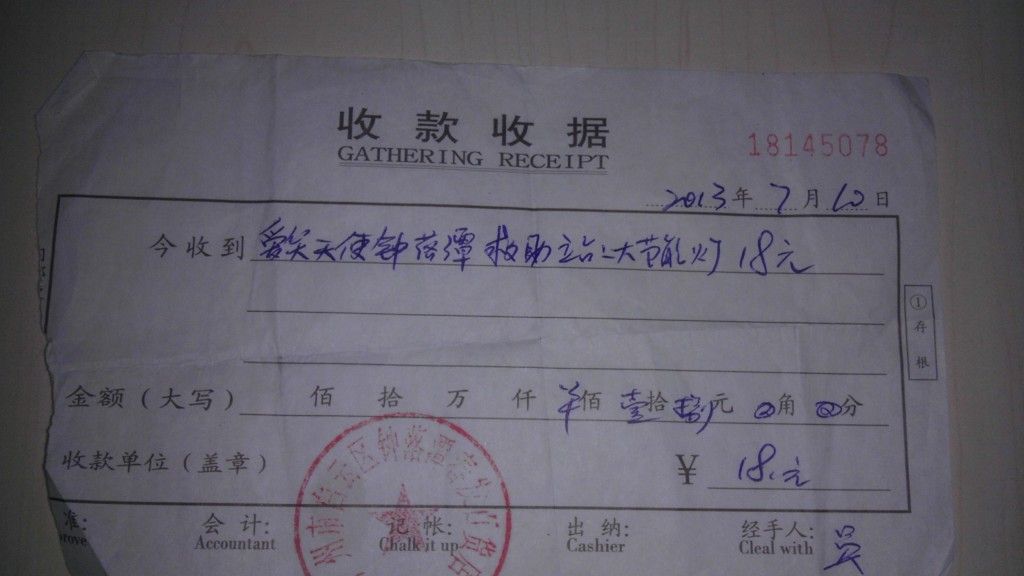 收款收据
GATHERING RECEIPT
18145078
2013年7月10日
今收到 爱笑天使钟落潭救助立台一大节能灯 18元
① 存根
金额（大写） 佰 拾 万 仟 ¥佰 壹拾 捌元 0角 0分
收款单位（盖章） ¥ 18.元
州市白云区钟落潭
准: 会计: 记帐: 出纳: 经手人: 吴
rove Accountant Chalk it up Cashier Cleal with